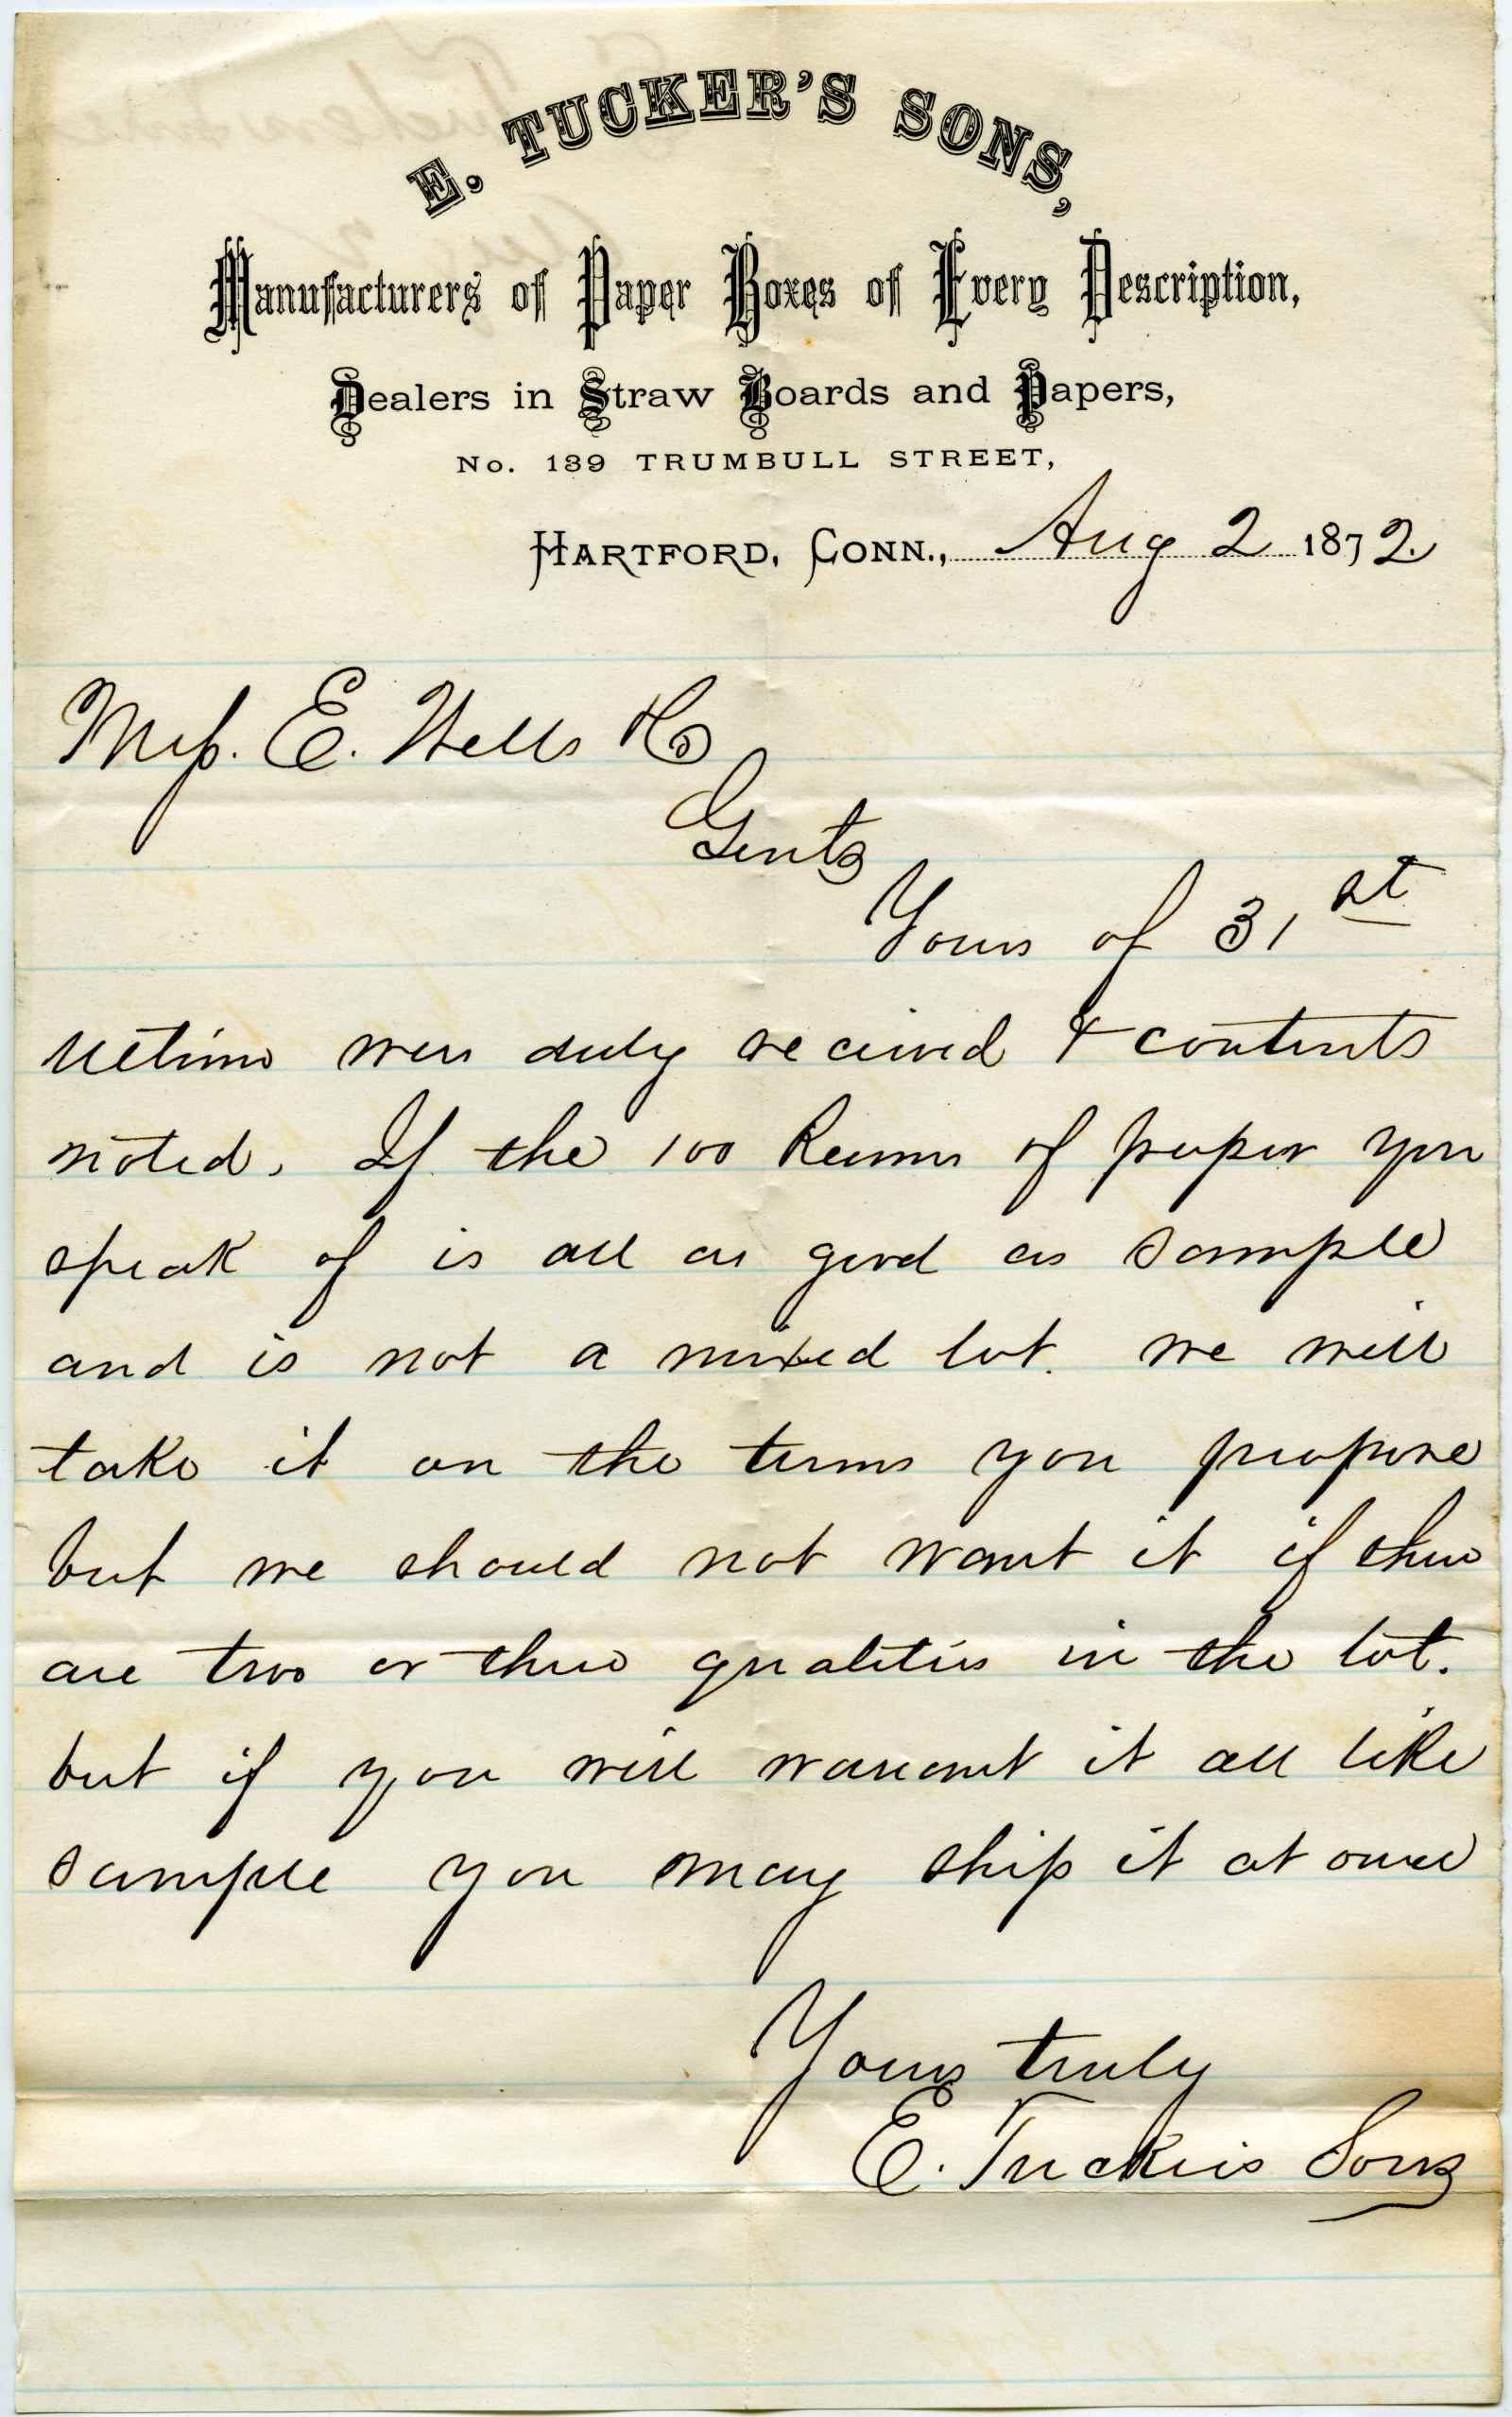 E. TUCKER'S SONS,
Manufacturers of Paper Boxes of Every Description,
Dealers in Straw Boards and Papers,
No. 139 TRUMBULL STREET,
HARTFORD, CONN., Aug 2 1872.
Mess. E. Wells & Co
Gents
Yours of 31st
ultimo were duly received & contents
noted. If the 100 Reams of paper you
speak of is all as good as sample
and is not a mixed lot. we will
take it on the terms you propose
but we should not want it if there
are two or three qualities in the lot.
but if you will warrant it all like
sample you may ship it at once
Yours truly
E. Tuckers Sons